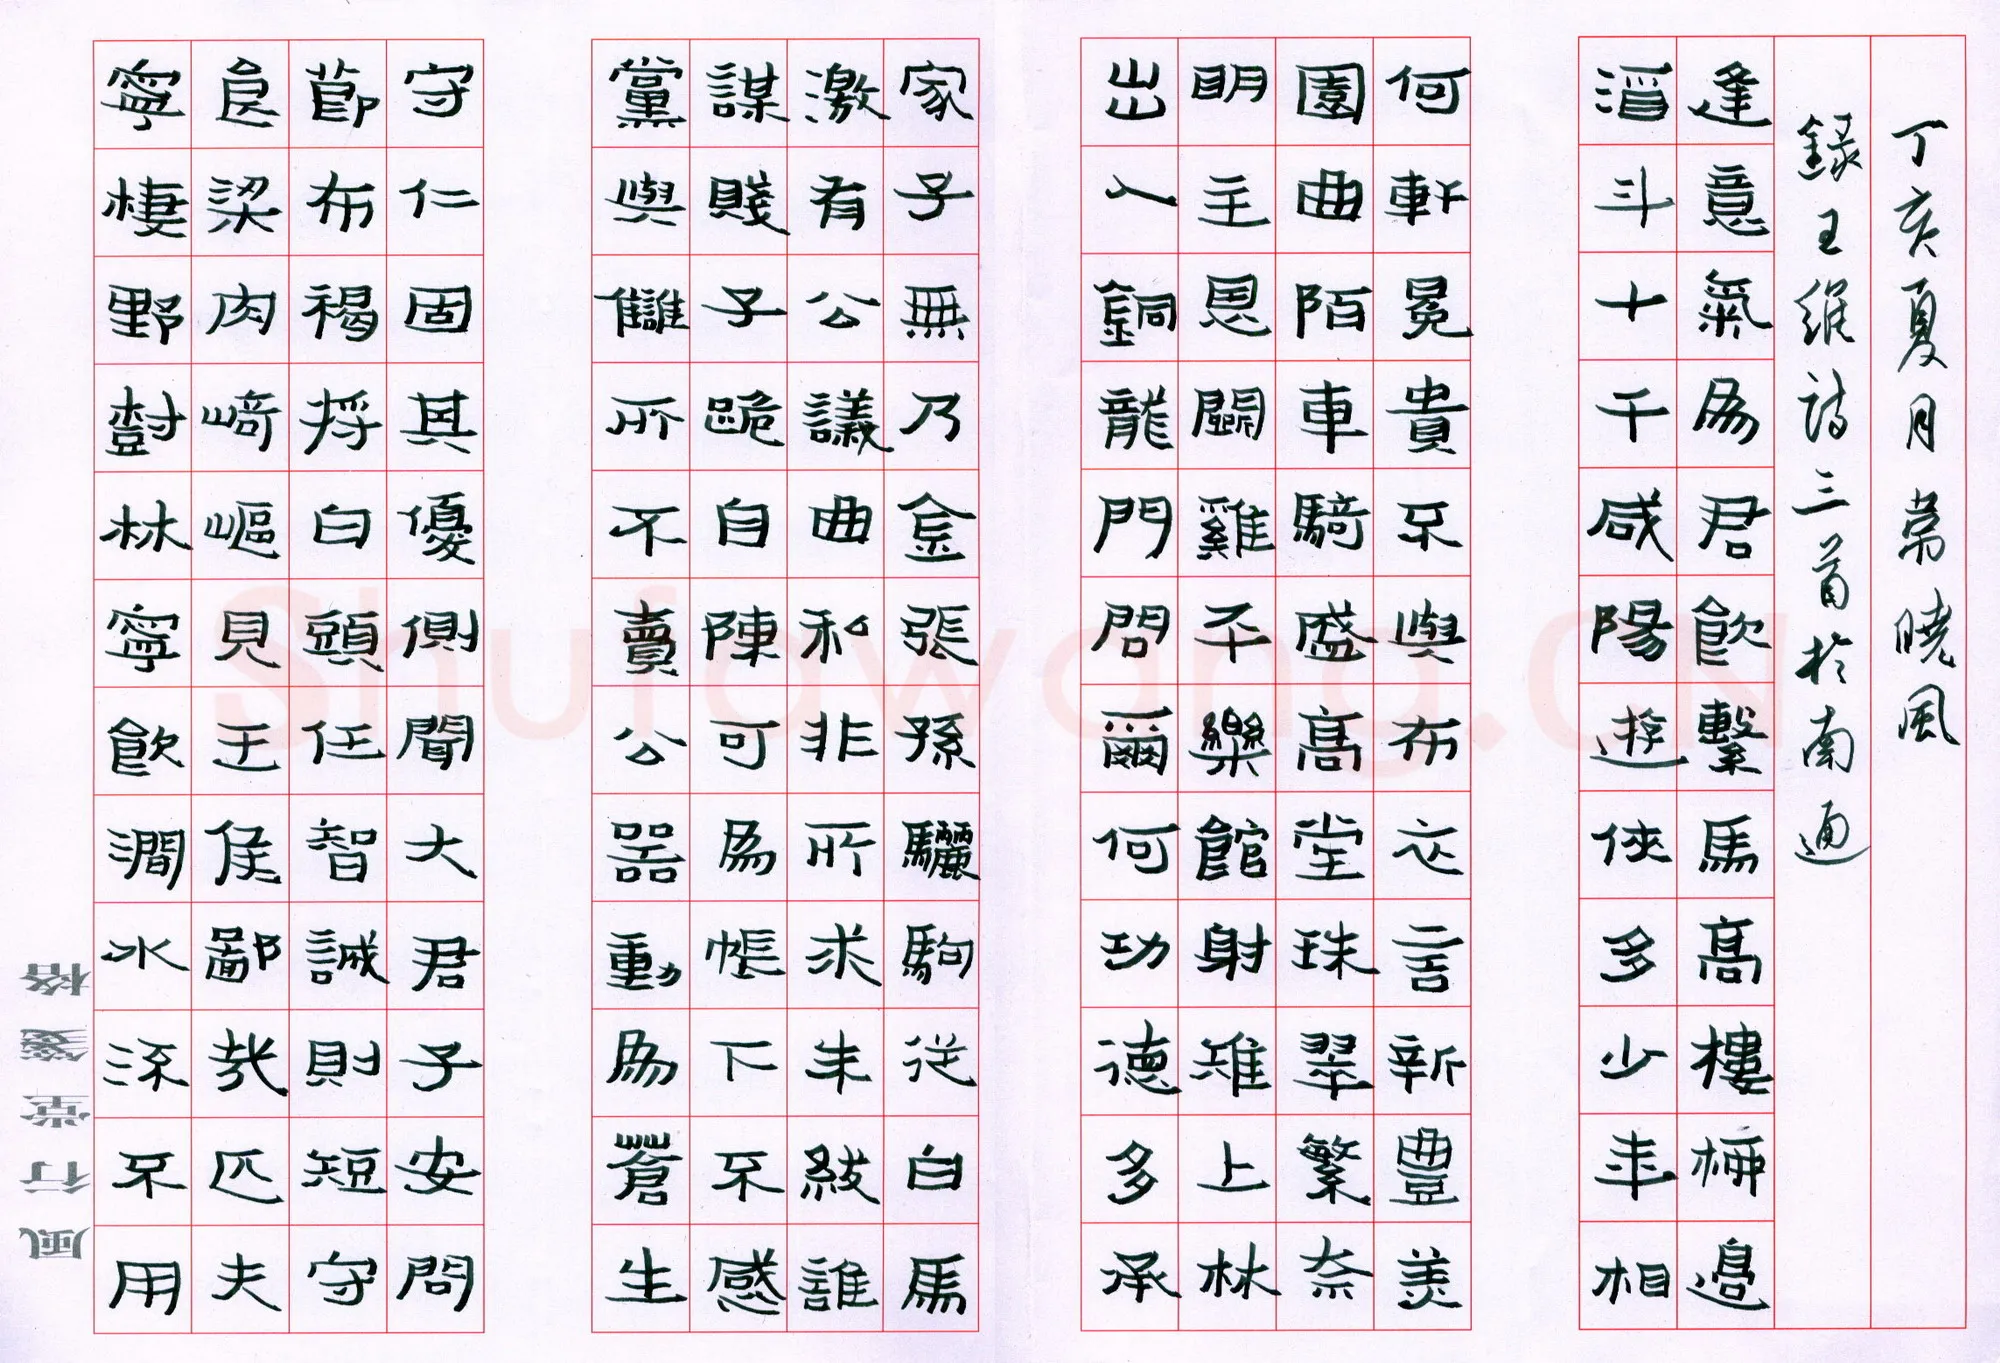 寧棲野樹林寧飲澗水流不用
食梁肉崎嶇見王侯鄙哉匹夫
節布褐將白頭任智誠則短守
守仁固其優側聞大君子安問
黨與讎所不賣公器動為蒼生
謀賤子跪自陳可為帳下不感
激有公議曲私非所求朱紱誰
家子無乃金張孫驪駒從白馬
出入銅龍門問爾何功德多承
明主恩鬭雞平樂館射雉上林
園曲陌車騎盛高堂珠翠繁奈
何軒冕貴不與布衣言新豐美
酒斗十千咸陽遊俠多少年相
逢意氣為君飲繫馬高樓柳邊
錄王維詩三首於南通
丁亥夏月常曉風
風行堂箋格
Shufawang.CN